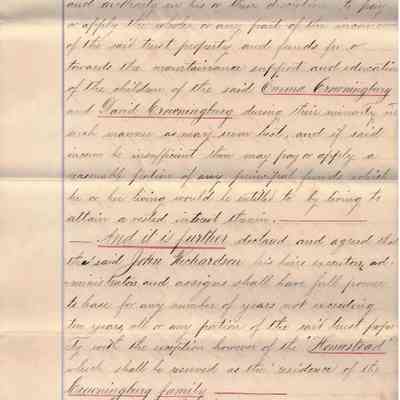 and authority in his or their discretion to pay
or apply the whole or any part of the income
of the said trust property and funds for or
towards the maintainance support and education
of the children of the said Emma Crowningburg
and David Crowningburg during their minority in
such manner as may seem best, and if said
income be insufficient then may pay or apply a
reasonable portion of any principal funds which
he or her living would be entitled to by living to
attain a vested interest therein.
And it is further declared and agreed that
the said John Richardson his heirs executors, ad-
ministrators and assigns shall have full power
to lease for any number of years not exceeding
ten years, all or any portion of the said trust prop
ty with the exception however of the "Homestead"
which shall be reserved as the residence of the
Crowningburg family